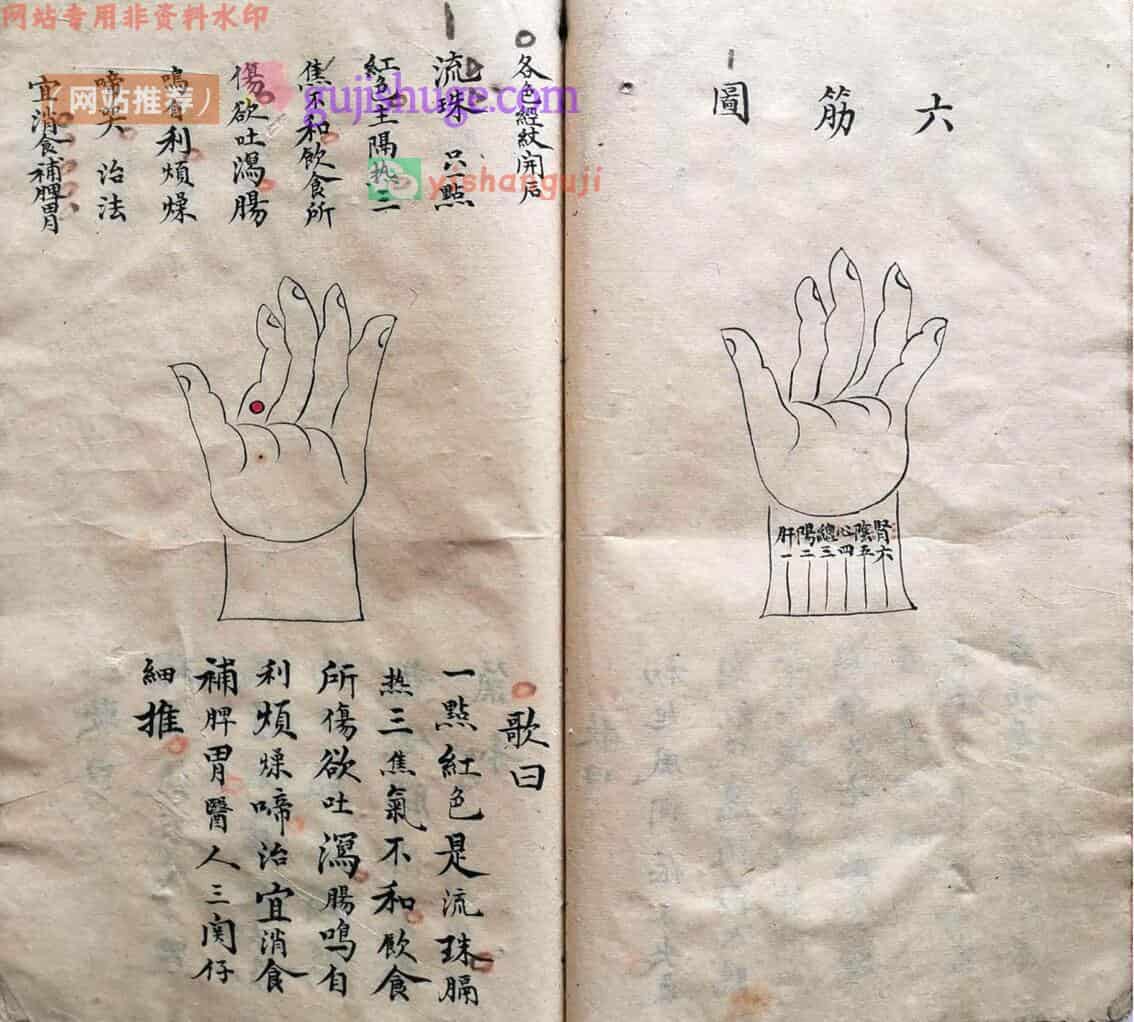 六筋圖
肝陽總心陰腎
一二三四五六
各色經紋開后
流珠 只一點
紅色主隔热三
焦不和飲食所
傷欲吐瀉腸
鳴自利煩燥
啼哭 治法
宜消食補脾胃
歌曰
一點紅色是流珠膈
热三焦氣不和飲食
所傷欲吐瀉腸鳴自
利煩燥啼治宜消食
補脾胃醫人三関仔
細推
网站专用非资料水印
（网站推荐）
gujishuge.com
yishanguji